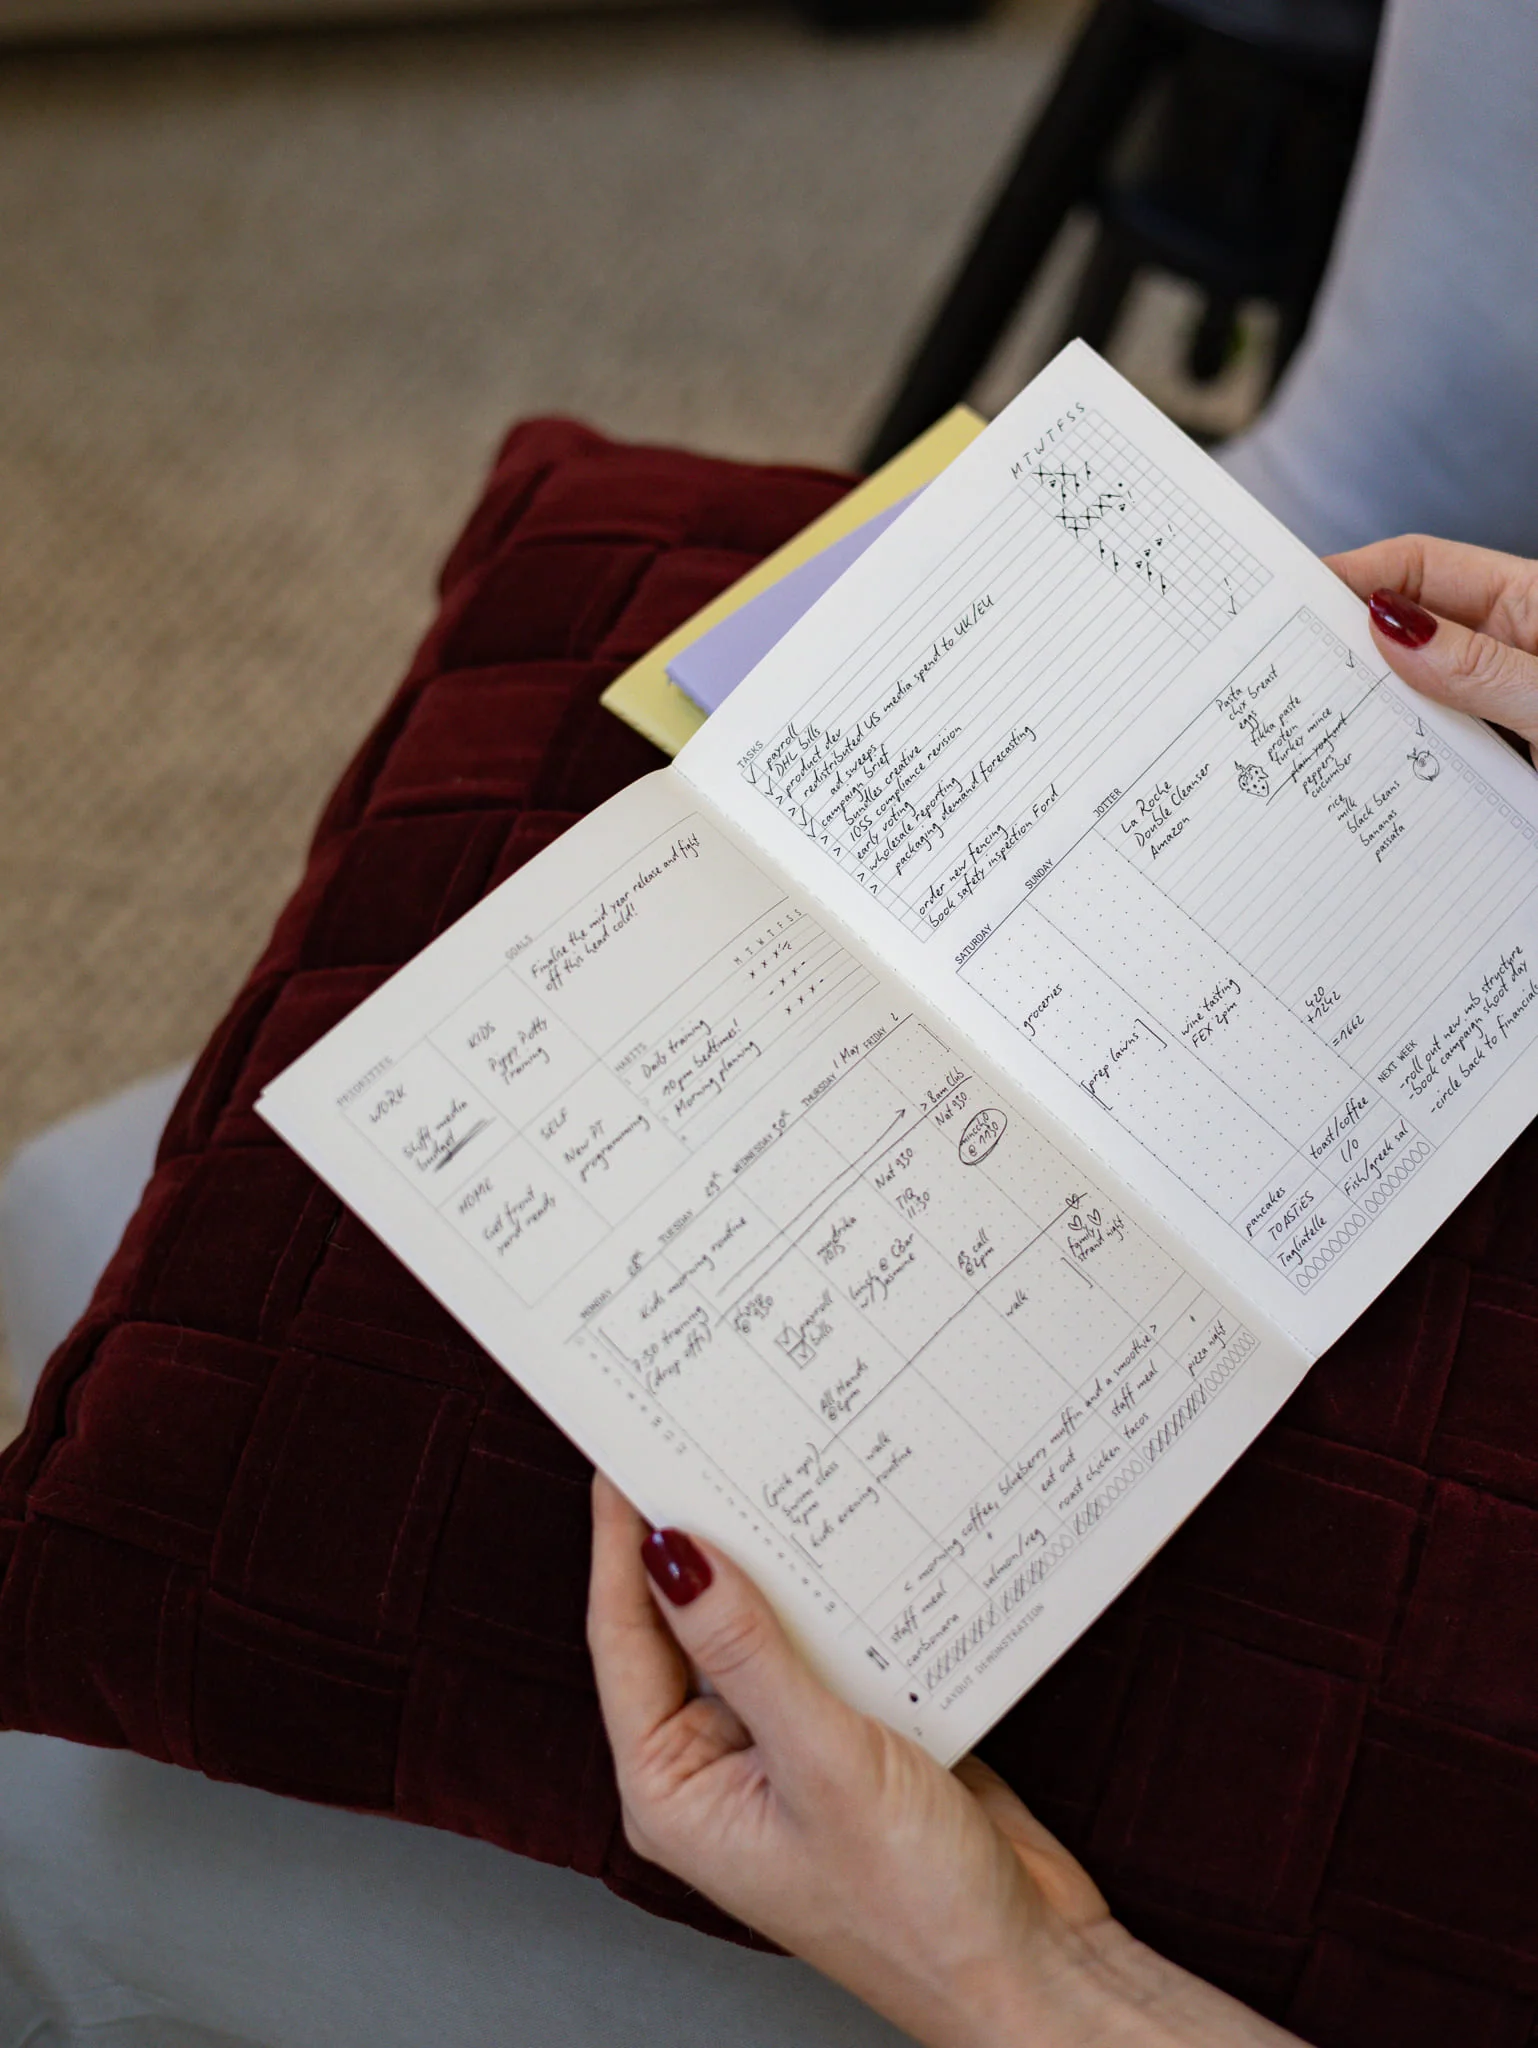 PRIORITIES
WORK
Shift media
budget
KIDS
Piggy Potty
Training
HOME
Get front
yard ready
SELF
New PT
programming
GOALS
Finalise the mid year release and fight
off this head cold!
HABITS
M T W T F S S
Daily training
10pm bedtimes!
Morning planning
MONDAY 28th
TUESDAY 29th
WEDNESDAY 30th
THURSDAY 1 May
FRIDAY 2
Kids morning routine
7:30 training
(drop offs)
@ 930
payroll
bills
All Hands
@ 2pm
(pick ups)
Swim class
4pm
walk
Kids evening routine
10/5
w/ Jasmine
Nat 930
TIQ
11:30
call
@ 2pm
walk
> 8am Club
Nat 930
@ 1130
family
strand night
< morning coffee, blueberry muffin and a smoothie >
staff meal
"
eat out
staff meal
"
carbonara
salmon/veg
roast chicken
tacos
pizza night
2
LAYOUT DEMONSTRATION
TASKS
M T W T F S S
payroll
DHL bills
product dev
redistributed US media spend to UK/EU
ad sweeps
campaign brief
bundles creative
IOSS compliance revision
early voting
wholesale reporting
packaging demand forecasting
order new fencing
book safety inspection Ford
SATURDAY
groceries
[prep lawns]
SUNDAY
wine tasting
FEX 2pm
JOTTER
La Roche
Double Cleanser
Amazon
Pasta
chx breast
eggs
tikka paste
protein
turkey mince
plain yoghurt
peppers
cucumber
rice
milk
black beans
bananas
passata
420
+1242
=1662
NEXT WEEK
-roll out new mb structure
-book campaign shoot day
-circle back to financials
pancakes
toast/coffee
TOASTIES
l/o
Tagliatelle
Fish/greek sal